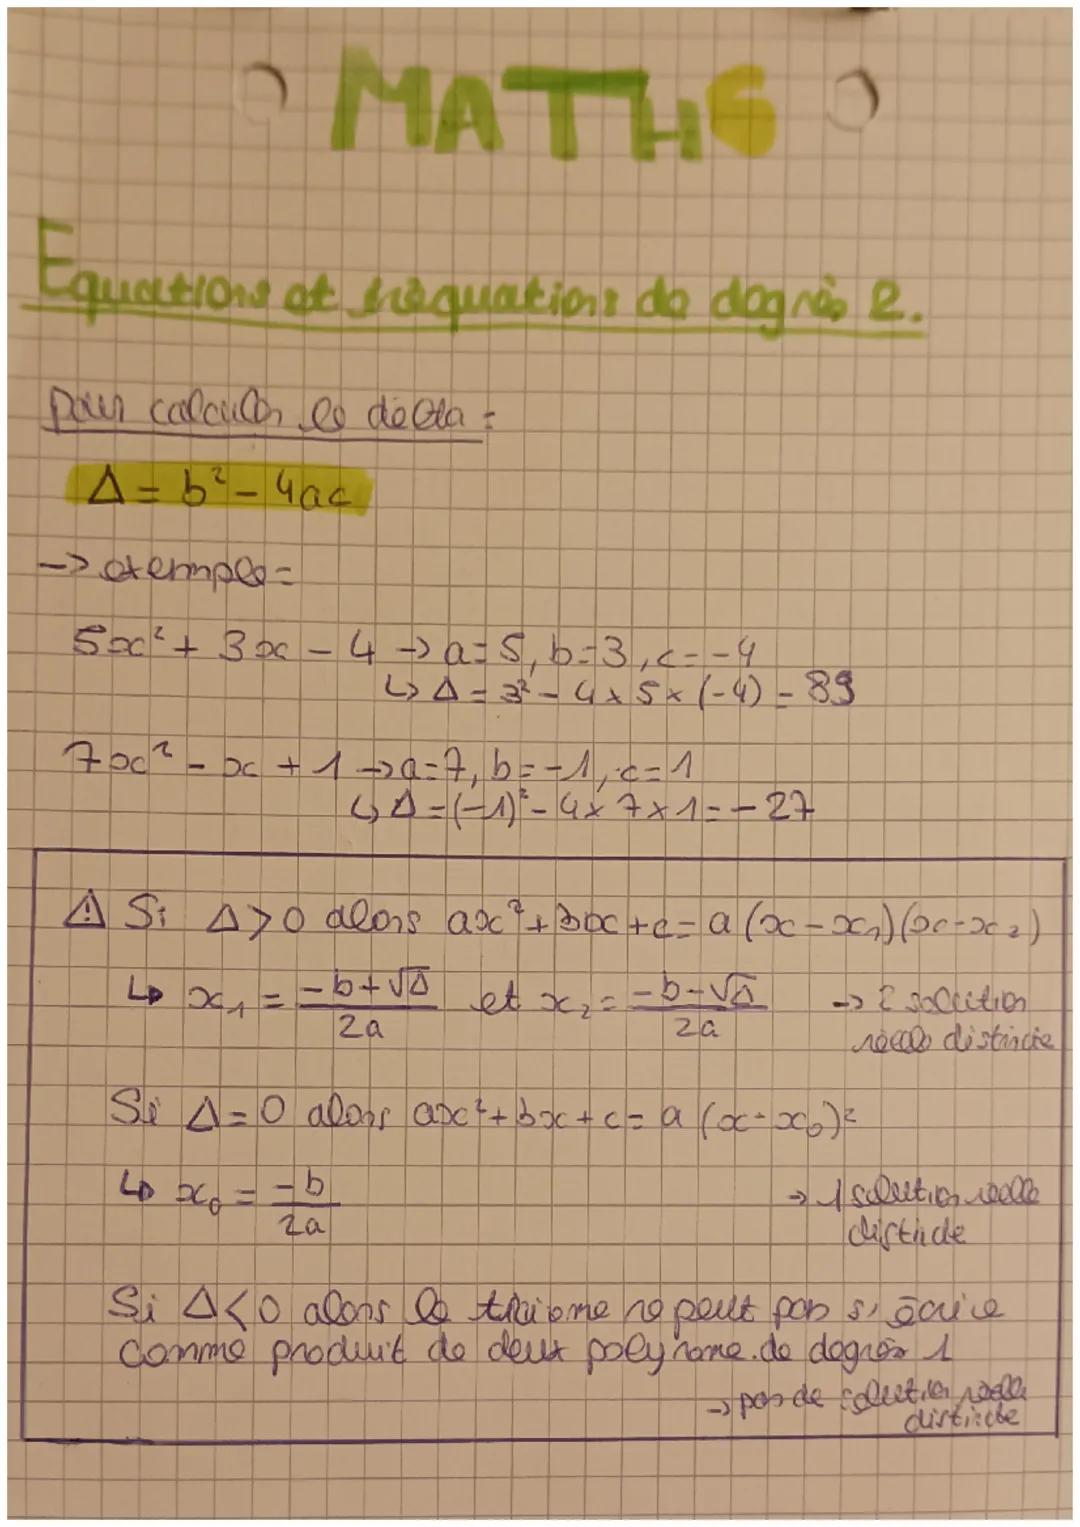 MATHS
Equations et inéquations de degrés 2.
pour calculer le delta =
Δ = b² - 4ac
-> exemple =
5x² + 3x - 4 -> a = 5, b = 3, c = -4
↳ Δ = 3² - 4 x 5 x (-4) = 89
7x² - x + 1 -> a = 7, b = -1, c = 1
↳ Δ = (-1)² - 4 x 7 x 1 = - 27
⚠ Si Δ > 0 alors ax² + bx + c = a (x - x₁) (x - x₂)
↳ x₁ = (-b + √Δ) / 2a et x₂ = (-b - √Δ) / 2a -> 2 solution
réelle distincte
Si Δ = 0 alors ax² + bx + c = a (x - x₀)²
↳ x₀ = -b / 2a -> 1 solution réelle
distincte
Si Δ < 0 alors le trinome ne peut pas s'écrire
comme produit de deux polynome de degrés 1
-> pas de solution réelle
distincte